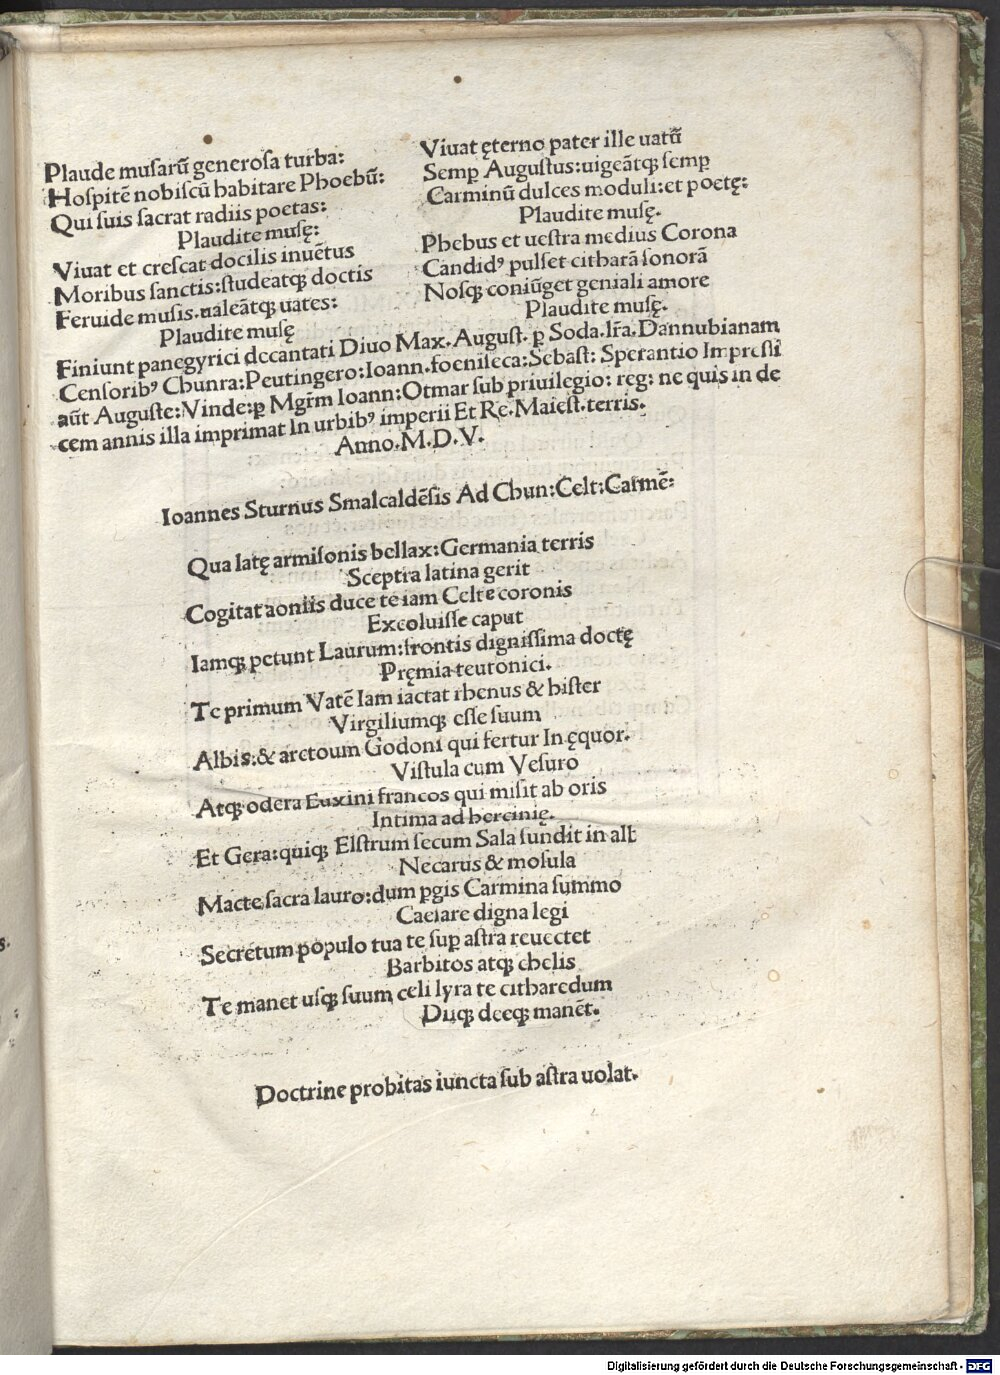 Plaude musarū generosa turba:
Hospitē nobiscū habitare Phoebū:
Qui suis sacrat radiis poetas:
Plaudite musę:
Viuat et crescat docilis inuētus
Moribus sanctis: studeatqꝫ doctis
Feruide musis. ualeātqꝫ uates:
Plaudite musę
Viuat ęterno pater ille uatū
Semꝑ Augustus: uigeātqꝫ semꝑ
Carminū dulces moduli: et poetę:
Plaudite musę.
Phebus et uestra medius Corona
Candidꝰ pulset citharā sonorā
Nosqꝫ coniūget geniali amore
Plaudite musę.
Finiunt panegyrici decantati Diuo Max. August. ꝑ Soda. lr̄a. Dannubianam
Censoribꝰ Chunra: Peutingero: Ioann. foeniseca: Sebast: Sperantio Impressi
aūt Auguste: Vinde: ꝑ Mgr̄m Ioann: Otmar sub priuilegio: reg: ne quis in de
cem annis illa imprimat In urbibꝰ imperii Et Re. Maiest. terris.
Anno. M. D. V.
Ioannes Sturnus Smalcaldēsis Ad Chun: Celt: Carmē:
Qua latę armisonis bellax: Germania terris
Sceptra latina gerit
Cogitat aoniis duce te iam Celte coronis
Excoluisse caput
Iamqꝫ petunt Laurum: frontis dignissima doctę
Pręmia teutonici.
Te primum Vatē Iam iactat rhenus & hister
Virgiliumqꝫ esse suum
Albis: & arctoum Godoni qui fertur In ęquor.
Vistula cum Vesuro
Atqꝫ odera Euxini francos qui misit ab oris
Intima ad hercinię.
Et Gera: quiqꝫ Elstrum secum Sala fundit in alt
Necarus & mosula
Macte sacra lauro: dum ꝑgis Carmina summo
Caesare digna legi
Secretum populo tua te suꝑ astra reuectet
Barbitos atqꝫ chelis
Te manet usqꝫ suum celi lyra te citharedum
Diiqꝫ deeqꝫ manēt.
Doctrine probitas iuncta sub astra uolat.
Digitalisierung gefördert durch die Deutsche Forschungsgemeinschaft - DFG